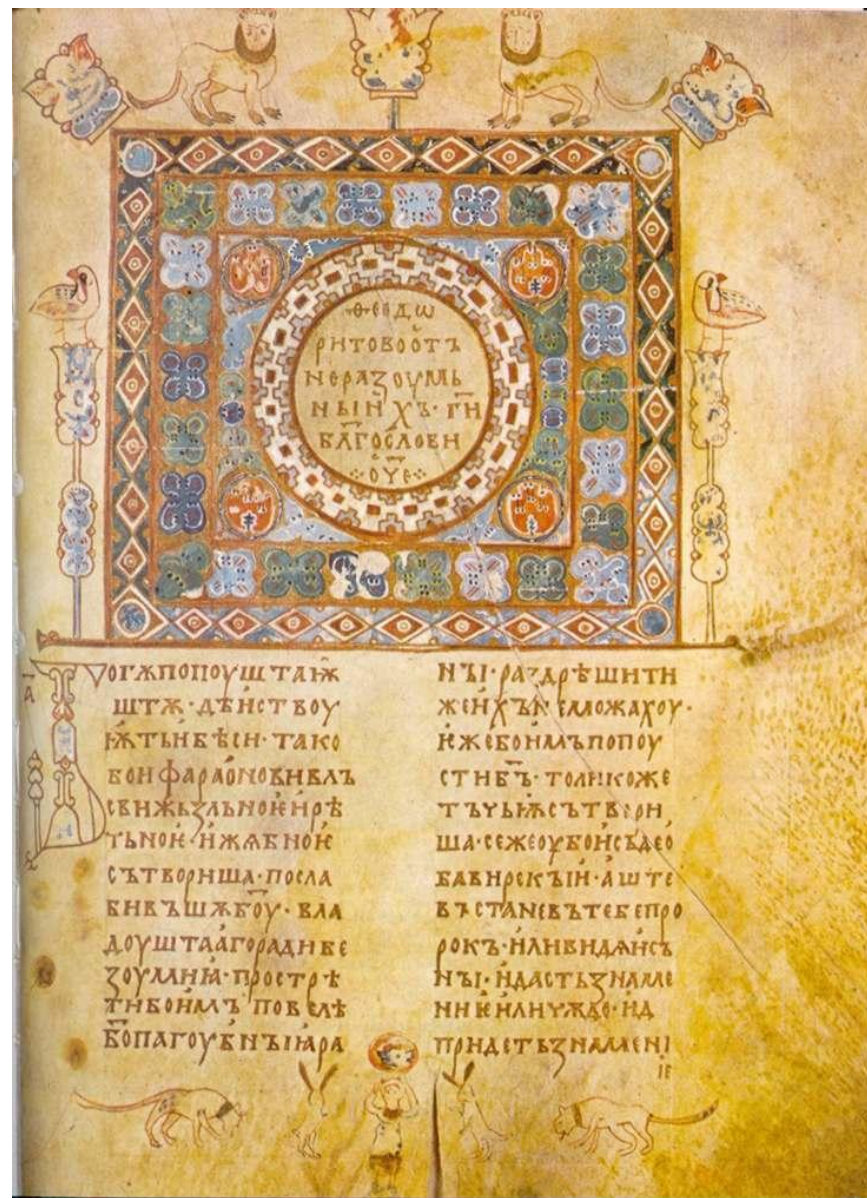 ѲЕОДѠ
РИТОВООТЪ
НЕРАЗОУМЬ
НЫИХЪ· Г҃Н
БЛ҃ГОСЛОВИ
О҃ЧЕ
А҃
БОГѪПОПОУШТАѬ
ШТѪ· ДѢИСТВОУ
ѬТЬИБѢСИ· ТАКО
БОИФАРАОНОВИВЛЪ
СВИЖЬЗЪЛЬНОЮИРѢ
ТЬНОѤ· ИЖѦБНОѤ
СЪТВОРИША· ПОСЛА
БИВЪШѪБ҃ОУ· ВЛА
ДОУШТАѦГОРАДИБЕ
ЗОУМИꙖ· ПРОСТРѢ
ТИБОИМЪПОВЕЛѢ
Б҃ОПАГОУБИНЪІꙖРА
НЪІ· РАЗДРѢШИТИ
ЖЕИХЪНЕМОЖАХОУ·
ИЖЕБОИМЪПОПОУ
СТИБ҃Ъ· ТОЛИКОЖЕ
ТЪЧЬѬСЪТВОРИ
ША· СЕЖЕОУБОИСЪДЕО
БАВИРЕКЪІИ· АШТЕ
ВЪСТАНЕВЪТЕБЕПРО
РОКЪ· ИЛИВИДѦИСЪ
НЪІ· ИДАСТЬЗНАМЕ
НИѤИЛИЧЮЖДО· ИД
ПРИДЕТЬЗНАМЕНІ
ІЕ